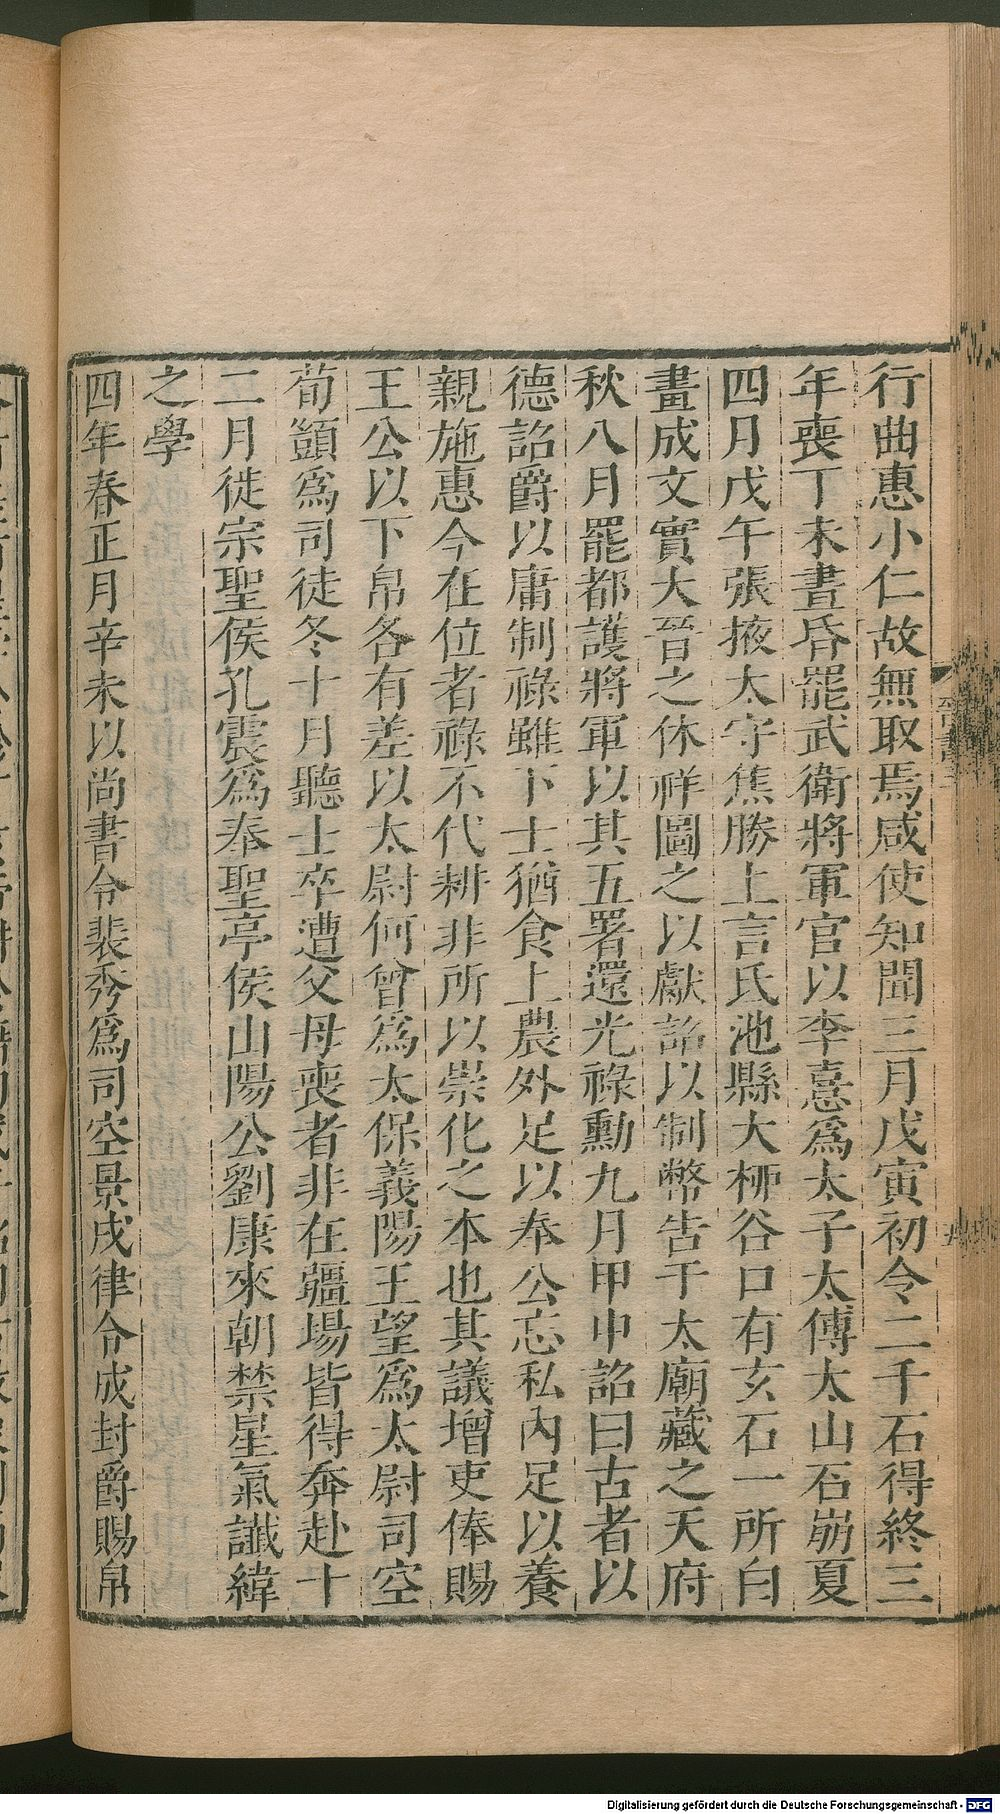 行曲惠小仁故無取焉咸使知聞三月戊寅初令二千石得終三
年喪丁未晝昏罷武衛將軍官以李憙爲太子太傅太山石崩夏
四月戊午張掖太守焦勝上言氐池縣大柳谷口有玄石一所白
畫成文實大晉之休祥圖之以獻詔以制幣告于太廟藏之天府
秋八月罷都護將軍以其五署還光祿勳九月甲申詔曰古者以
德詔爵以庸制祿雖下士猶食上農外足以奉公忘私內足以養
親施惠今在位者祿不代耕非所以崇化之本也其議增吏俸賜
王公以下帛各有差以太尉何曾爲太保義陽王望爲太尉司空
荀顗爲司徒冬十月聽士卒遭父母喪者非在疆場皆得奔赴十
二月徙宗聖侯孔震爲奉聖亭侯山陽公劉康來朝禁星氣讖緯
之學
四年春正月辛未以尚書令裴秀爲司空景戌律令成封爵賜帛
Digitalisierung gefördert durch die Deutsche Forschungsgemeinschaft - DFG